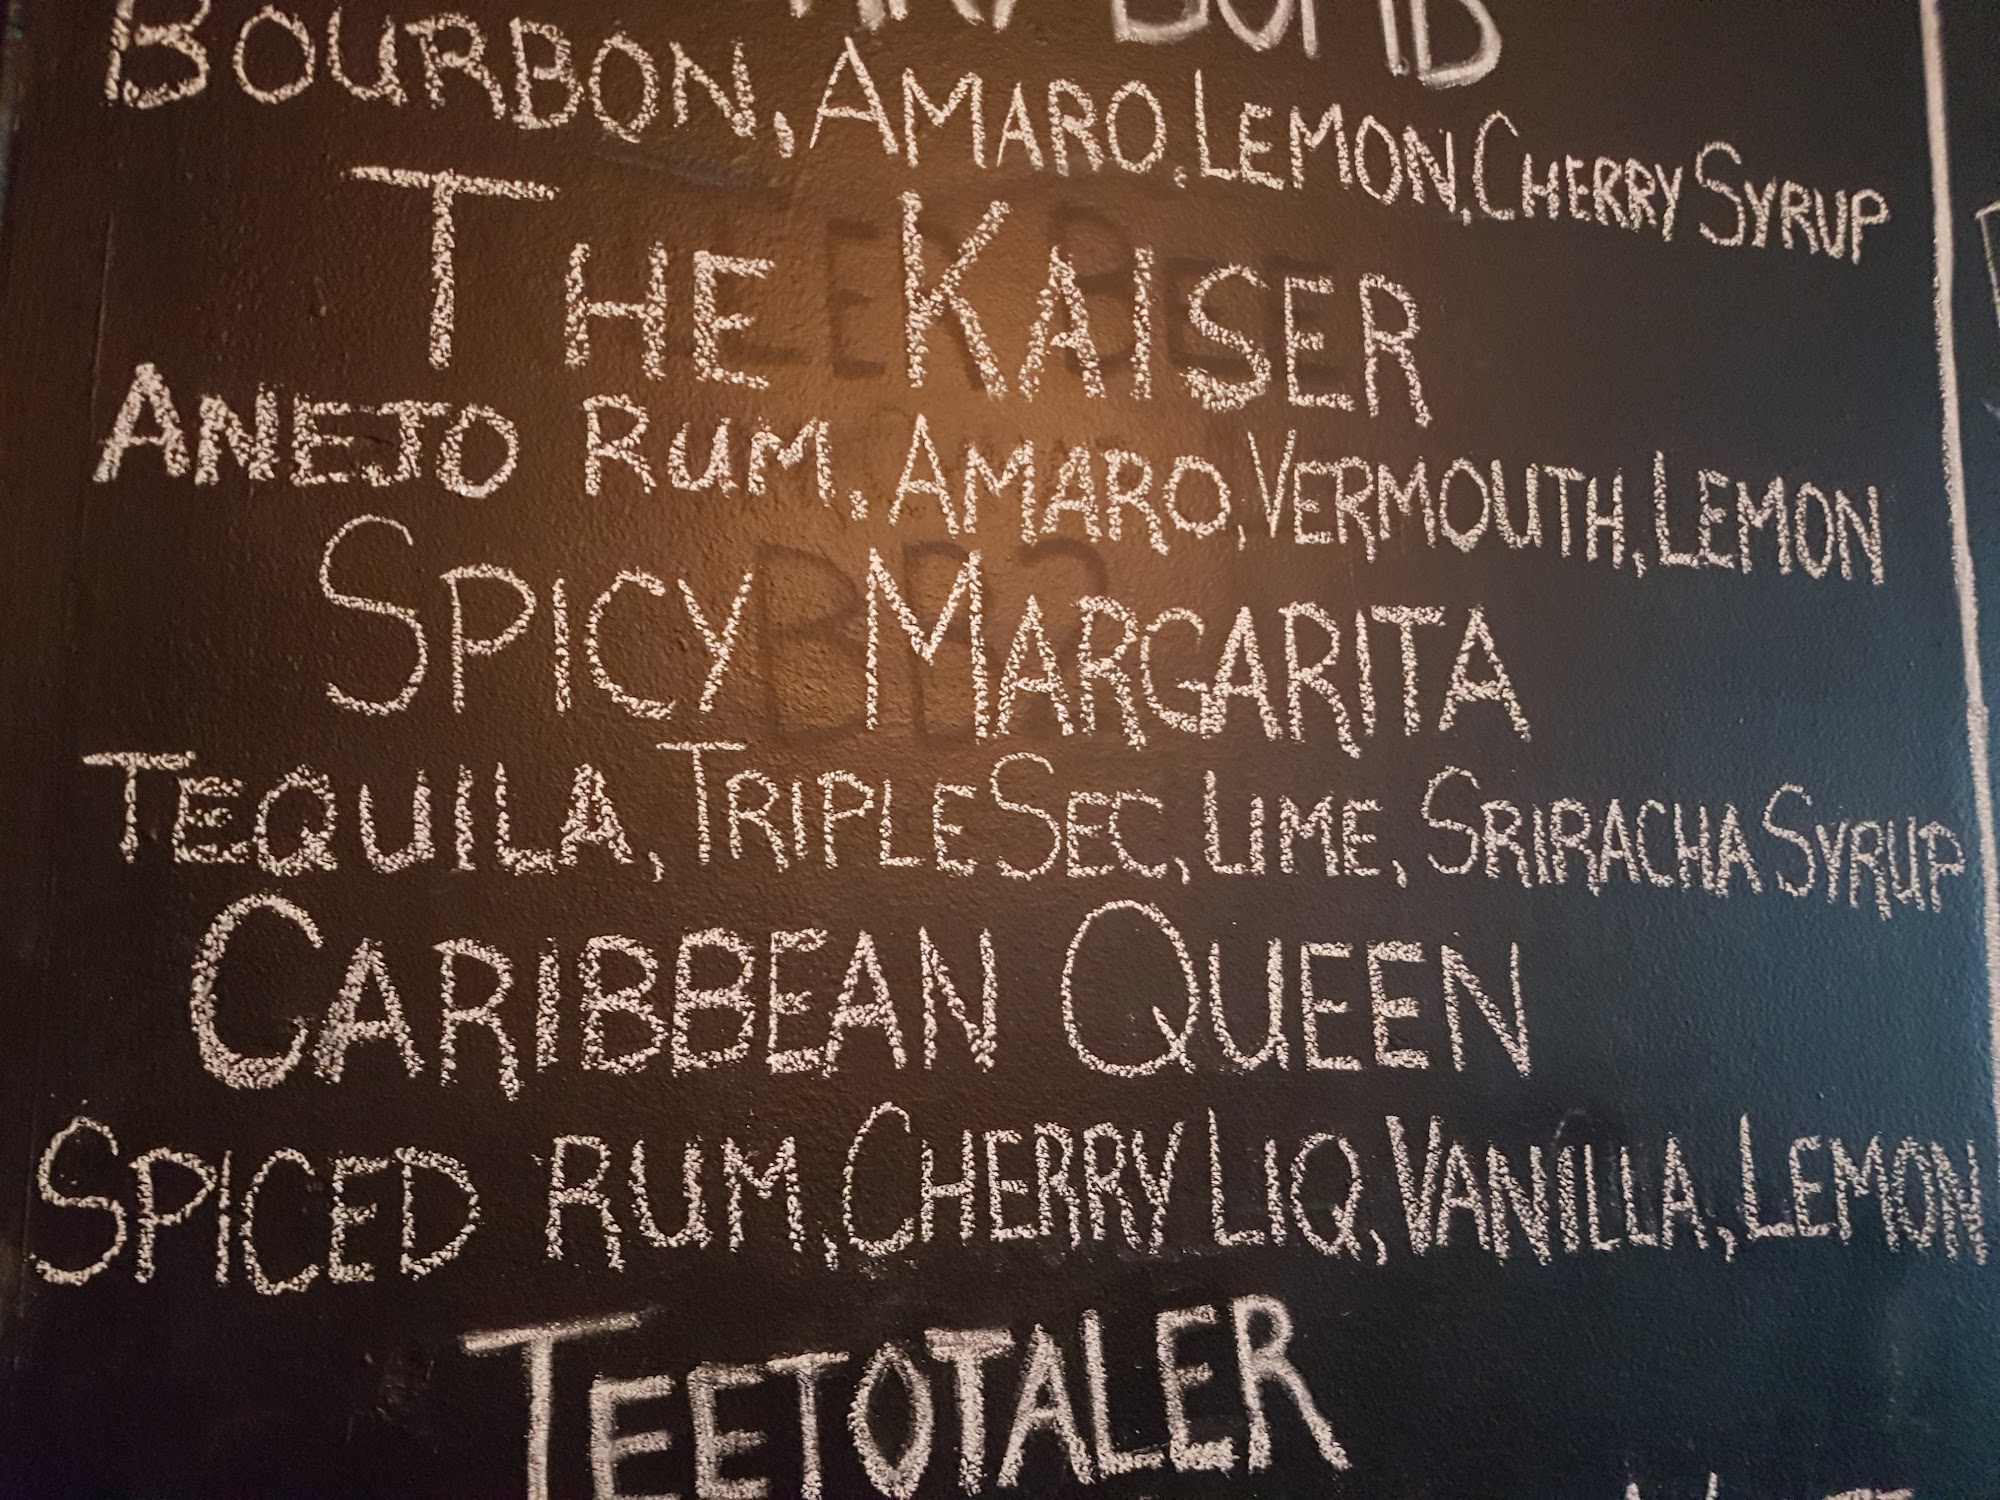 BOMB
BOURBON, AMARO, LEMON, CHERRY SYRUP
THE KAISER
ANEJO RUM, AMARO, VERMOUTH, LEMON
SPICY MARGARITA
TEQUILA, TRIPLE SEC, LIME, SRIRACHA SYRUP
CARIBBEAN QUEEN
SPICED RUM, CHERRY LIQ, VANILLA, LEMON
TEETOTALER